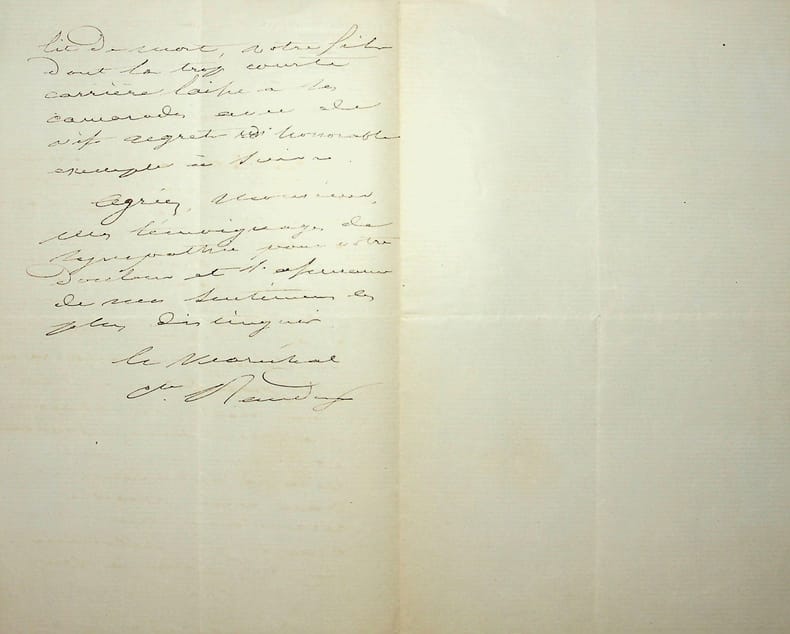 lit de mort, votre fils
dont la trop courte
carrière laisse à ses
camarades avec de
vifs regrets un honorable
exemple à suivre.
Agréez, Monsieur,
mes témoignages de
sympathie pour votre
douleur et l'assurance
de mes sentimens les
plus distingués
le Maréchal
Cte Randon